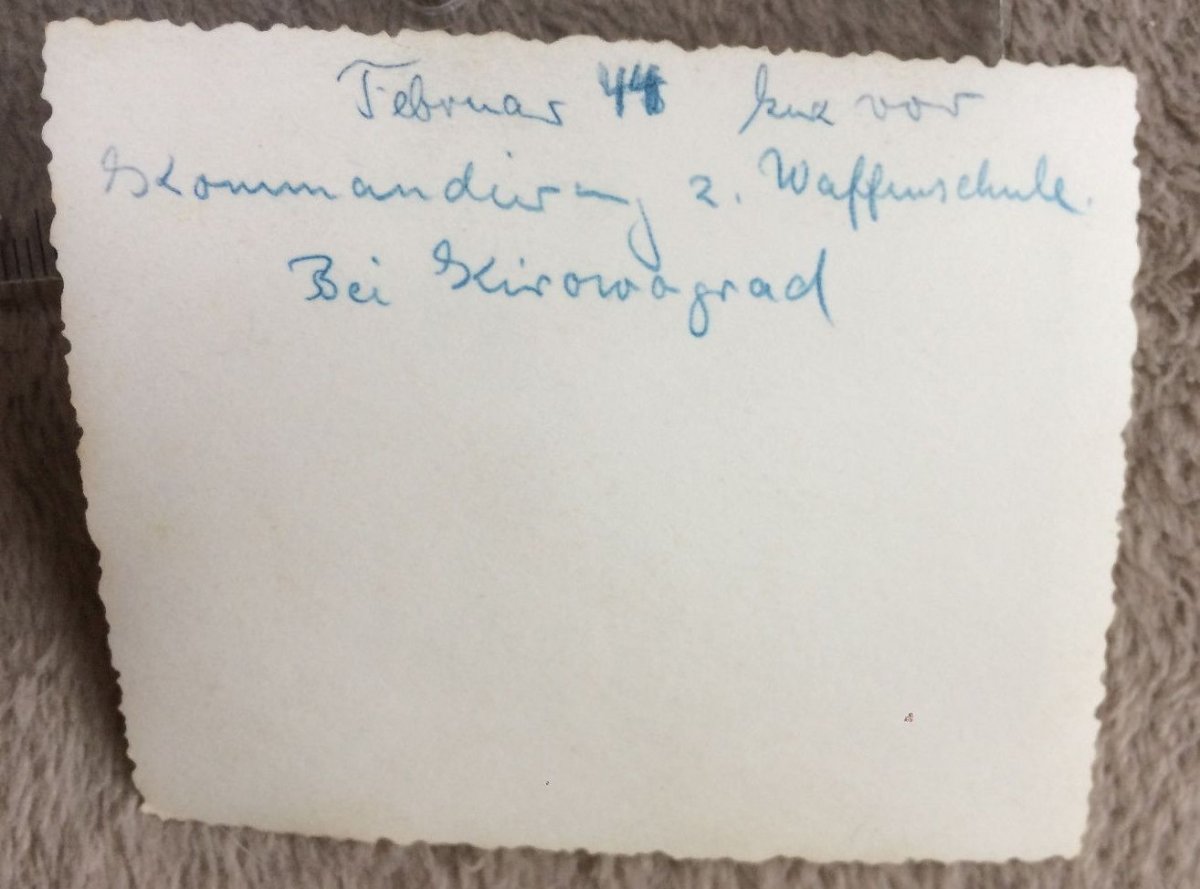 Februar 44 kurz vor
Kommandierung z. Waffenschule.
Bei Kirowograd